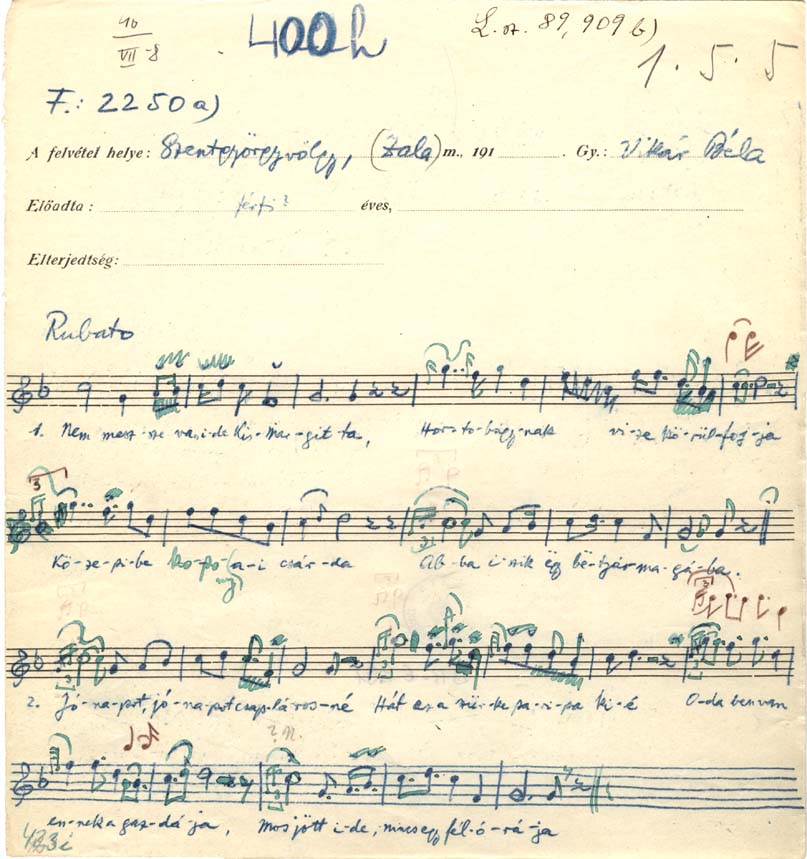 16
VII-8
400h
L. sz. 89,909 b)
1. 5. 5
F.: 2250a)
A felvétel helye: Szentgyörgyvölgy, (Zala) m., 191 . Gy.: Vikár Béla
Előadta: férfi? éves,
Elterjedtség:
Rubato
1. Nem messze van i-de Kis-Mar-git-ta, Hor-to-bágy-nak vi-ze kö-rül-foj-ja
3
Kö-ze-pi-be ko-po-(a-i csár-da Ab-ba i-szik egy be-tyár ma-gá-ba.
2. Jó-na-pot, jó-na-pot csap-lá-ros-né Hát ez a szür-ke pa-ri-pa ki-é O-da ben van
en-nek a gaz-dá-ja, Mos jött i-de, nincs egy fél-ó-rá-ja